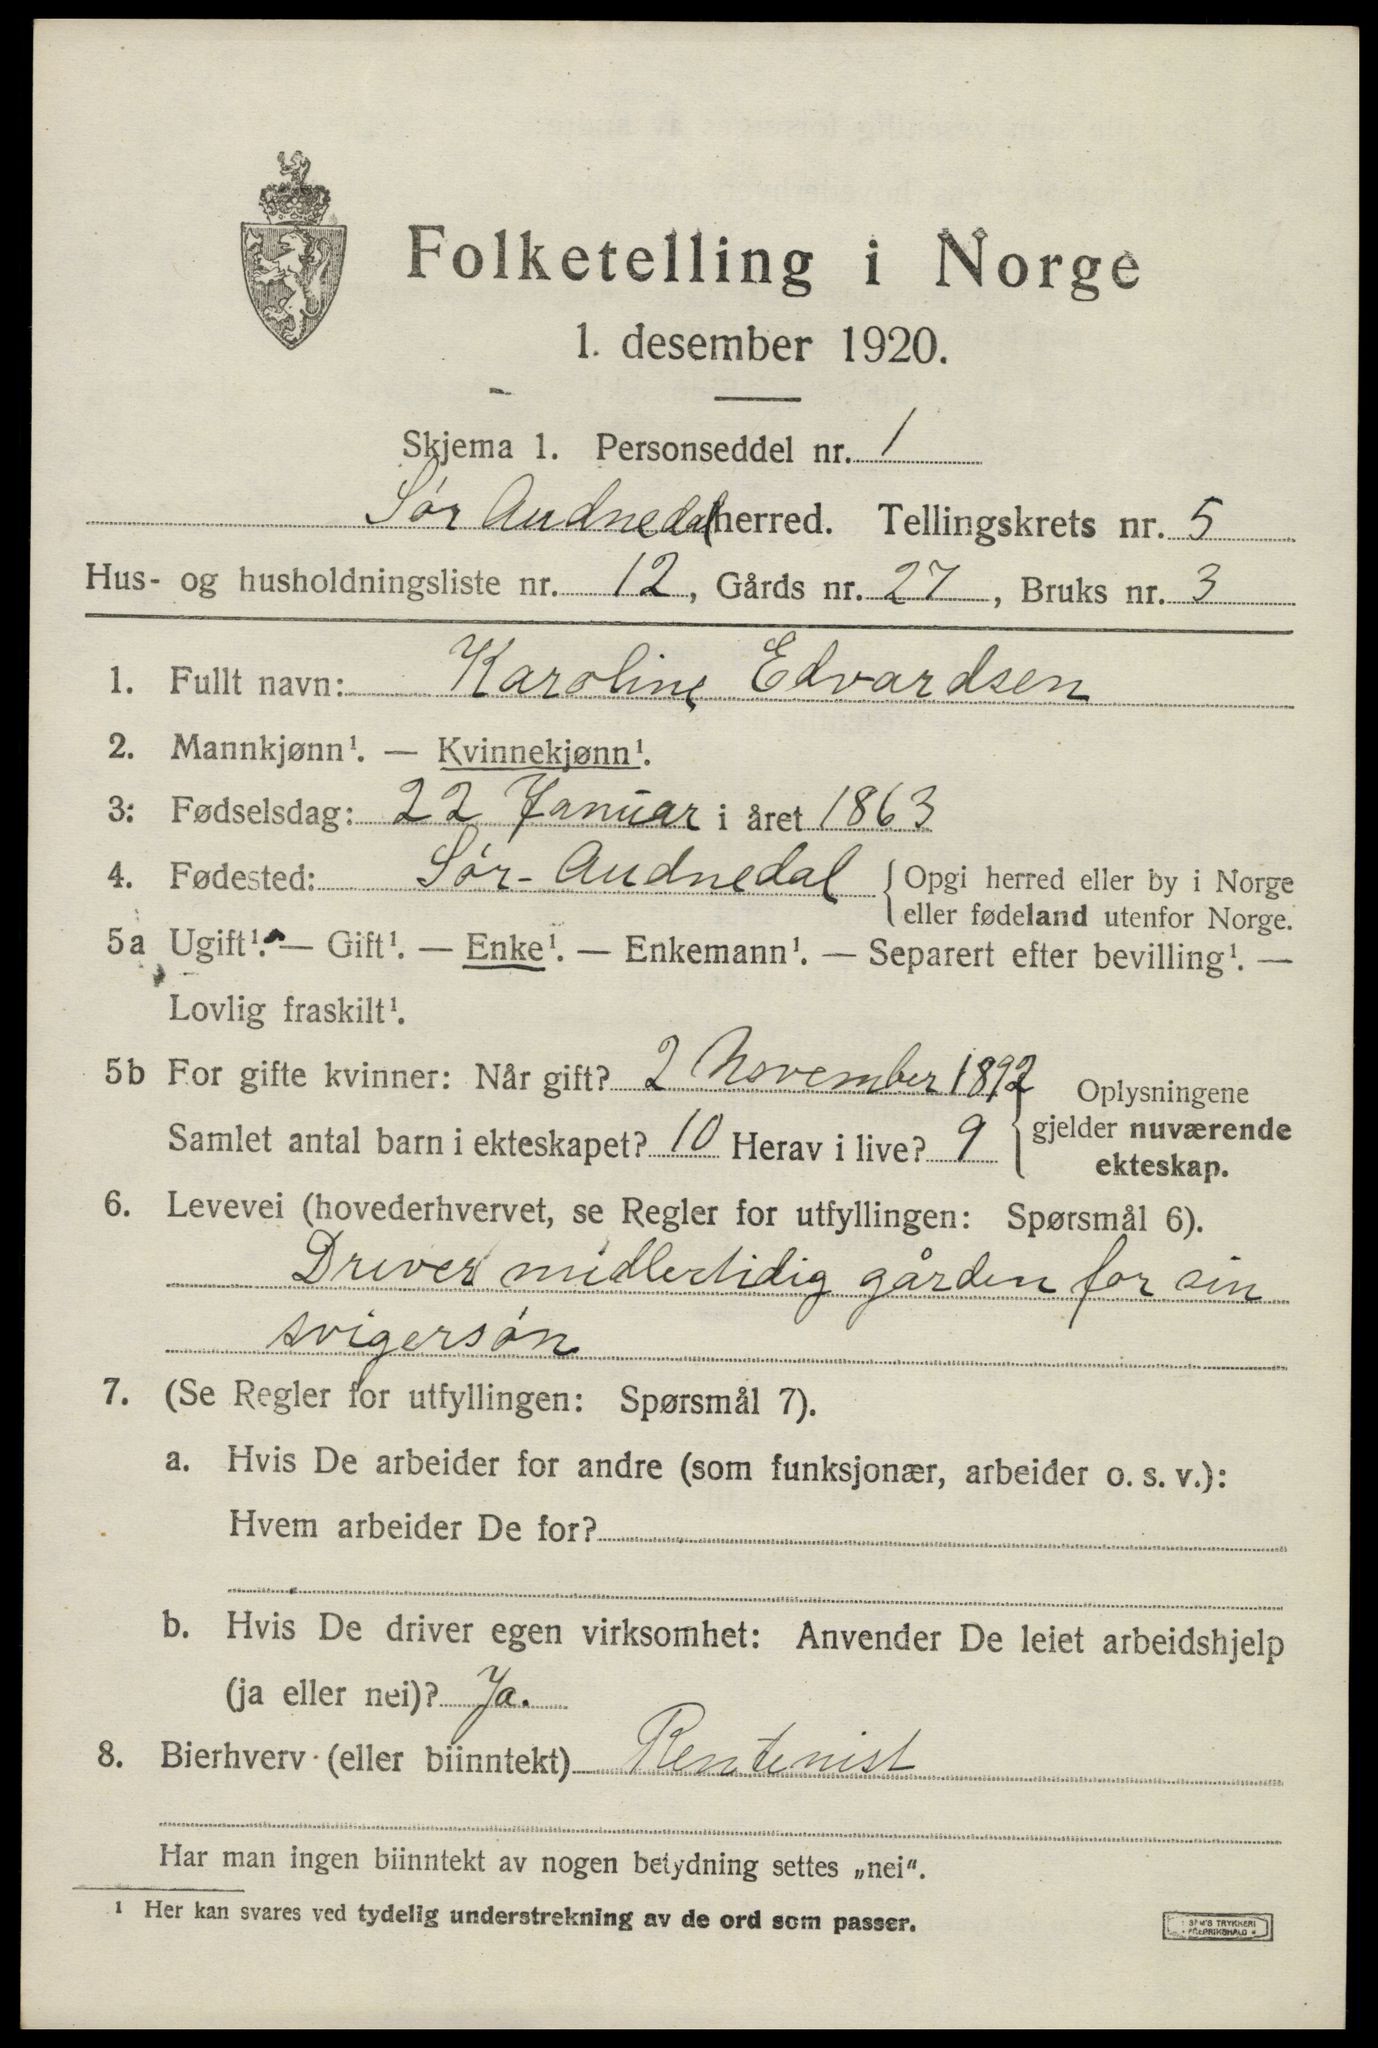 Folketelling i Norge
1. desember 1920.
Skjema 1. Personseddel nr. 1
Sør Audnedal herred. Tellingskrets nr. 5
Hus- og husholdningsliste nr. 12, Gårds nr. 27, Bruks nr. 3
1. Fullt navn: Karoline Edvardsen
2. Mannkjønn¹. — Kvinnekjønn¹.
3: Fødselsdag: 22 Januar i året 1863
4. Fødested: Sør-Audnedal { Opgi herred eller by i Norge
eller fødeland utenfor Norge.
5a Ugift¹. — Gift¹. — Enke¹. — Enkemann¹. — Separert efter bevilling¹. —
Lovlig fraskilt¹.
5b For gifte kvinner: Når gift? 2 November 1892
Samlet antal barn i ekteskapet? 10 Herav i live? 9
{ Oplysningene
gjelder nuværende
ekteskap.
6. Levevei (hovederhvervet, se Regler for utfyllingen: Spørsmål 6).
Driver midlertidig gården for sin
svigersøn
7. (Se Regler for utfyllingen: Spørsmål 7).
a. Hvis De arbeider for andre (som funksjonær, arbeider o. s. v.):
Hvem arbeider De for?
b. Hvis De driver egen virksomhet: Anvender De leiet arbeidshjelp
(ja eller nei)? Ja.
8. Bierhverv (eller biinntekt) Rentenist
Har man ingen biinntekt av nogen betydning settes „nei".
¹ Her kan svares ved tydelig understrekning av de ord som passer.
TRYKKERI